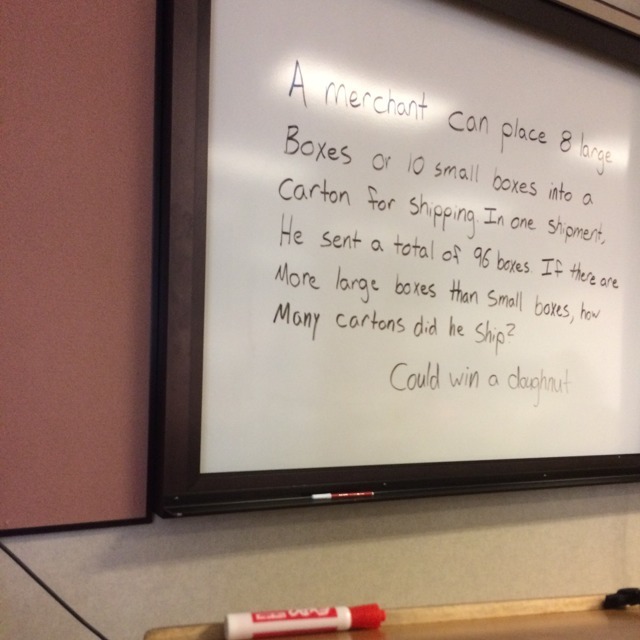 A merchant can place 8 large
Boxes or 10 small boxes into a
Carton for shipping. In one shipment,
He sent a total of 96 boxes. If there are
More large boxes than small boxes, how
Many cartons did he ship?
Could win a doughnut